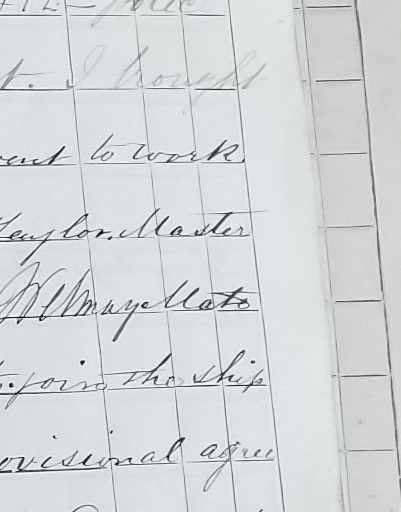 t. I brought
ent to work
Taylor. Master
Mate
join the ship
ovisional agree